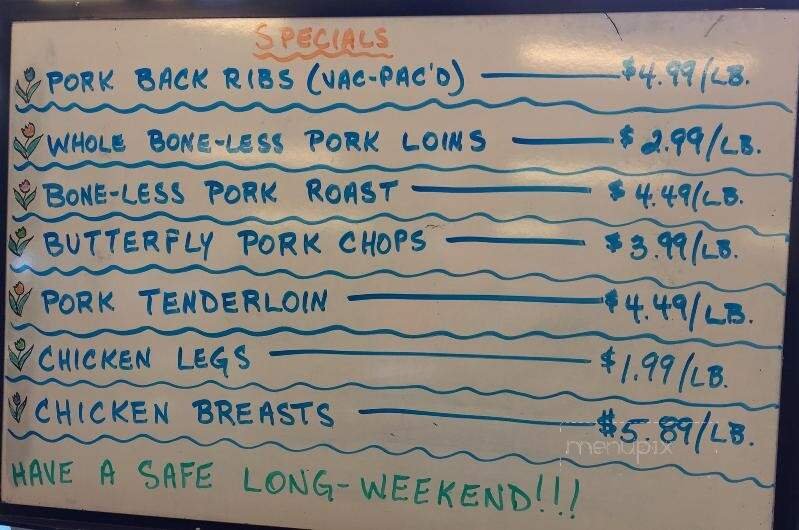 SPECIALS
PORK BACK RIBS (VAC-PAC'D) $4.99/LB.
WHOLE BONE-LESS PORK LOINS $2.99/LB.
BONE-LESS PORK ROAST $4.49/LB.
BUTTERFLY PORK CHOPS $3.99/LB.
PORK TENDERLOIN $4.49/LB.
CHICKEN LEGS $1.99/LB.
CHICKEN BREASTS $5.89/LB.
menupix
HAVE A SAFE LONG-WEEKEND!!!